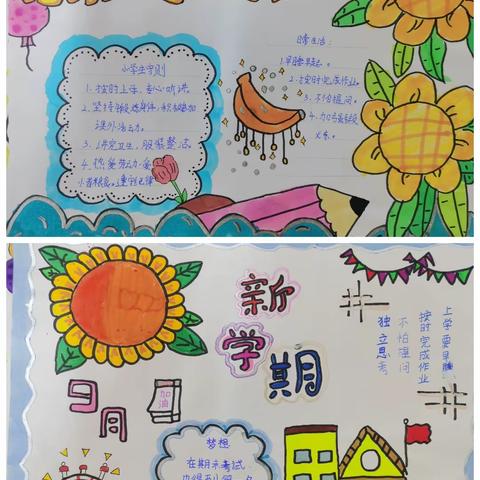 小学生守则
1.按时上车,专心听讲。
2.坚持锻炼身体,积极参加
课外活动。
3.讲究卫生,服装整洁
4.热爱劳动,爱
日常生活:
1.早睡早起。
2.按时完成作业。
3.不怕提问。
新
学
期
9月
加油
上学要早睡
按时完成作业
不怕提问
独立思考
梦想
在期末考试